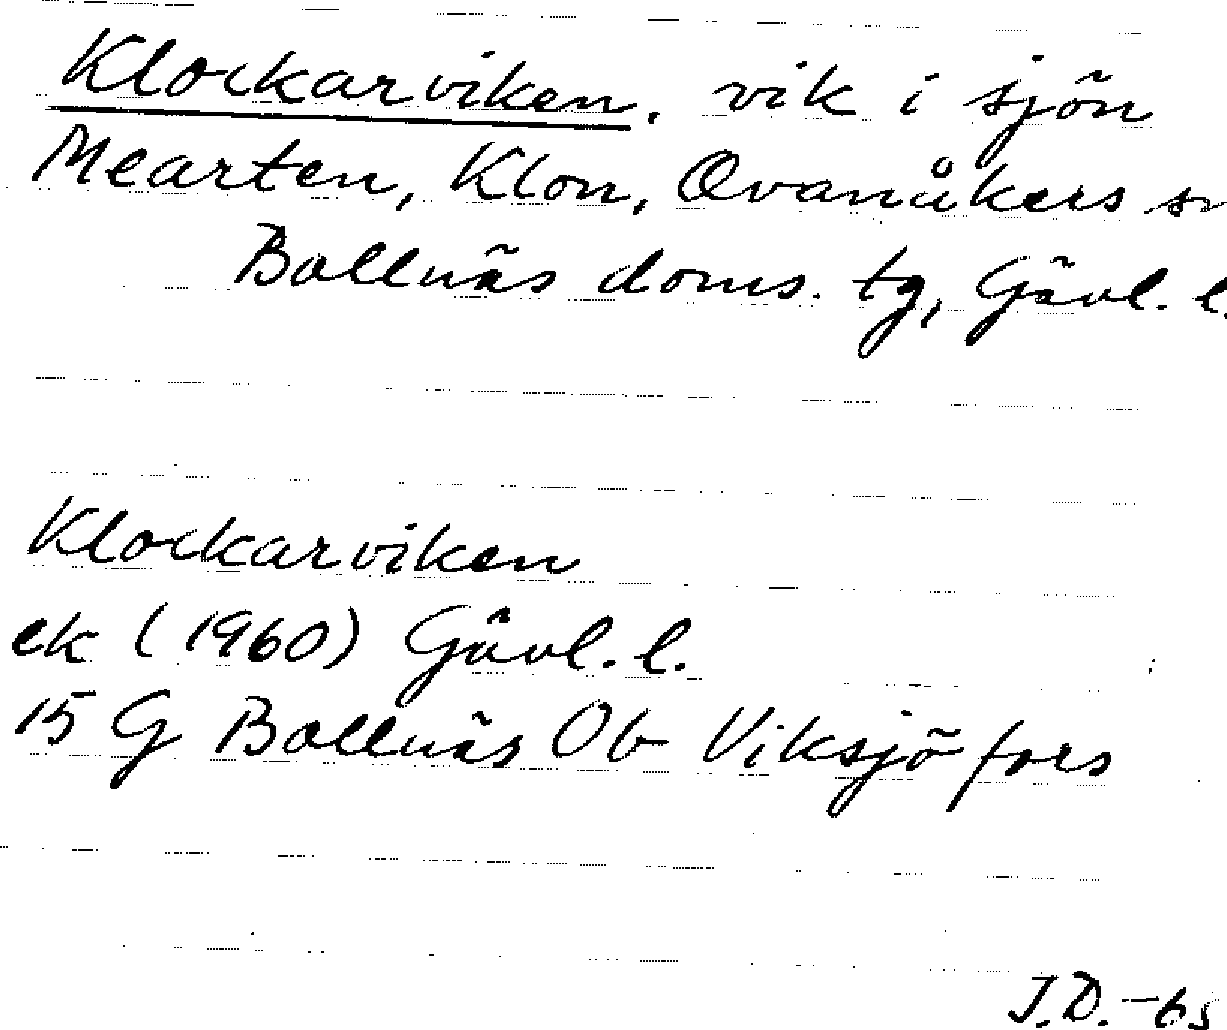 Klockarviken, vik i sjön
Mearten, Klon, Ovanåkers sn
Bollnäs doms. tg, Gävl. l.
Klockarviken
ek (1960) Gävl. l.
15 G Bollnäs Ob Viksjöfors
J.D. -65